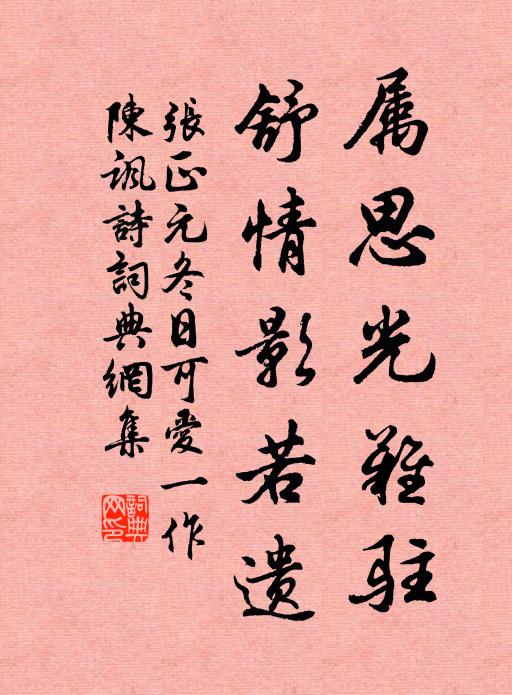 属思光难驻
舒情影若遗
張正元冬日可愛一作
陳諷詩詞典網集
詞典網印